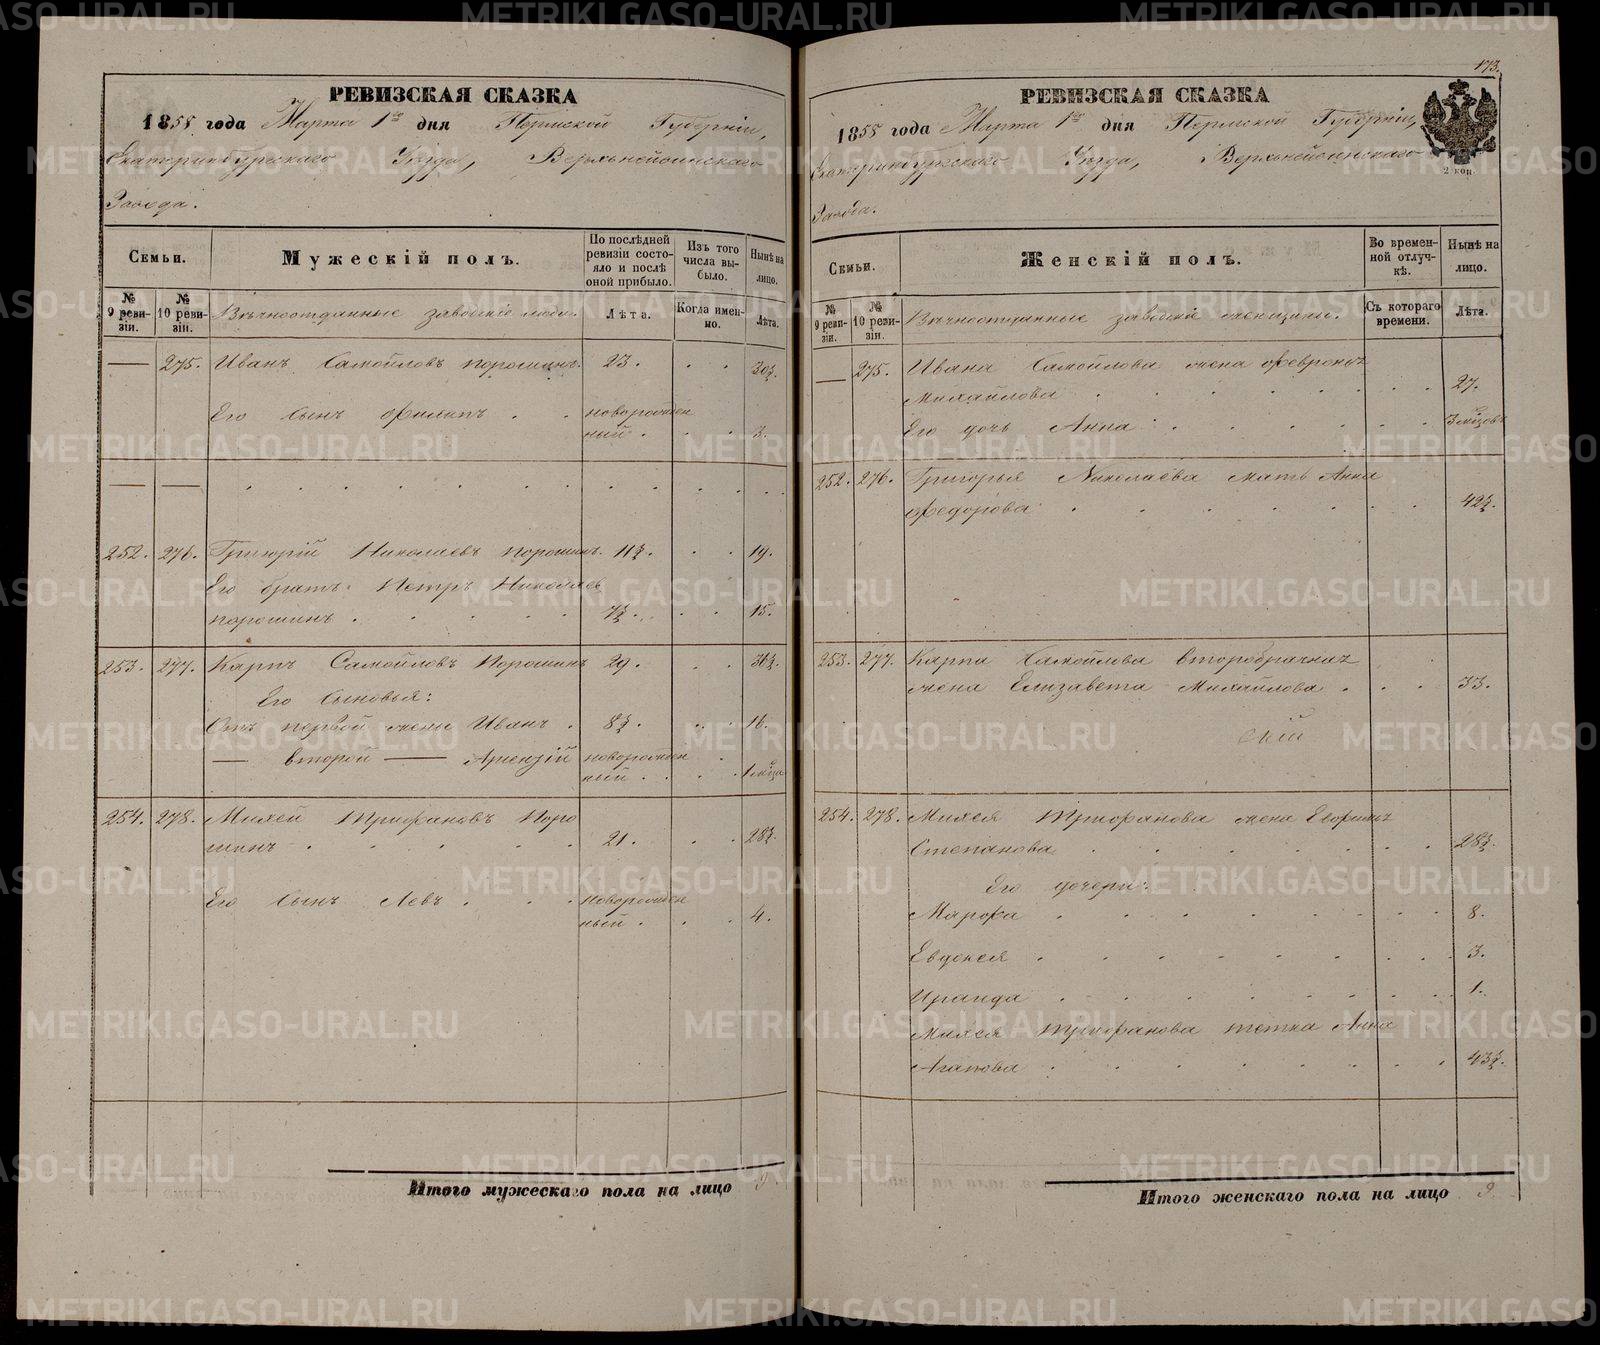 173.
РЕВИЗСКАЯ СКАЗКА
1855 года Марта 1го дня Пермской Губерніи,
Екатеринбургскаго Уѣзда, Верхьнейвинскаго
Завода.
Семьи.
Мужескій полъ.
По послѣдней ревизіи состояло и послѣ оной прибыло.
Изъ того числа выбыло.
Нынѣ на лицо.
№ 9 ревизіи.
№ 10 ревизіи.
Вѣчноотданные заводскіе люди.
Лѣта.
Когда именно.
Лѣта.
— 275. Иванъ Самойловъ Порошинъ. 23. 30¾.
Его сынъ Филипъ новорожден
ный. 3.
252. 276. Григорій Николаевъ Порошинъ. 11¾. 19.
Его братъ Петръ Николаев
Порошинъ. 7¾. 15.
253. 277. Карпъ Самойловъ Порошинъ 29. 36¾.
Его сыновья:
Отъ первой жены Иванъ. 8¾. 16.
— второй — Арсензій новорожден
ный. 1 мѣсца
254. 278. Михей Трифановъ Поро
шинъ 21. 28¾.
Его сынъ Левъ новорожден
ный. 4.
Итого мужескаго пола на лицо 9.
РЕВИЗСКАЯ СКАЗКА
1855 года Марта 1го дня Пермской Губерніи,
Екатеринбургскаго Уѣзда, Верхьнейвинскаго
Завода.
2 коп.
Семьи.
Женскій полъ.
Во временной отлучкѣ.
Нынѣ на лицо.
№ 9 ревизіи.
№ 10 ревизіи.
Вѣчноотданные заводскіе женщины.
Съ котораго времени.
Лѣта.
— 275. Ивана Самойлова жена Февронья
Михайлова 27.
Его дочь Анна 3 мѣсцов
252. 276. Григорья Николаева мать Анна
Федорова 42¾.
253. 277. Карпа Самойлова второбрачная
жена Елизавета Михайлова. 33.
254. 278. Михея Трифанова жена Евфимья
Степанова 28¾.
Его дочери:
Марфа 8.
Евдокея 3.
Ираида 1.
Михея Трифанова тетка Анна
Агапова 43¾.
Итого женскаго пола на лицо 9.
METRIKI.GASO-URAL.RU